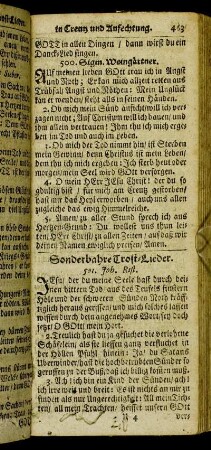 in Creutz und Anfechtung. 463
GOTT in allen Dingen / dann wirst du ein
Danck-Lied singen.
500. Sigm. Weingärtner.
AUf meinen lieben GOtt trau ich in Angst
und Noth; Er kan mich allzeit retten aus
Trübsal Angst und Nöthen: Mein Unglück
kan er wenden / steht alls in seinen Händen.
2. Ob mich mein Sünd anficht / will ich ver-
zagen nicht; Auf Christum will ich bauen / und
ihm allein vertrauen / Ihm thu ich mich erge-
ben im Tod und auch im Leben.
3. Ob mich der Tod nimmt hin / ist Sterben
mein Gewinn / denn Christus ist mein Leben /
dem thu ich mich ergeben: Ich sterb heut oder
morgen / mein Seel wird GOtt versorgen.
4. O mein HErr JEsu Christ / der du so
gdultig bist / für mich am Creutz gestorben /
hast mir das Heil erworben / auch uns allen
zugleiche das ewig Himmelreiche.
5. Amen / zu aller Stund sprech ich aus
Hertzen-Grund: Du wollest uns thun leiten
HErr Christ zu allen Zeiten / auf daß wir
deinen Namen ewiglich preisen / Amen.
Sonderbahre Trost-Lieder.
501. Joh. Rist.
JEsu / der du meine Seele hast durch dei-
nen bittern Tod aus des Teufels finstern
Höle und der schweren Sünden Noth kräff-
tiglich heraus gerissen / und mich solches lassen
wissen durch dein angenehmes Wort / sey doch
jetzt O GOtt / mein Hort.
2. Treulich hast du ja gesuchet die verlohrne
Schäfelein / als sie liefen gantz verfluchet in
der Höllen Pfuhl hinein: Ja / du Satans
Uberwinder / hast die hochbetrübten Sünder so
geruffen zu der Buß / daß ich billig komen muß.
3. Ach ich bin ein Kind der Sünden / ach! ich
irre weit und breit: Es ist nichts an mir zu
finden als nur Ungerechtigkeit: All mein Tich-
ten / all mein Trachten / heisset unsern GOtt